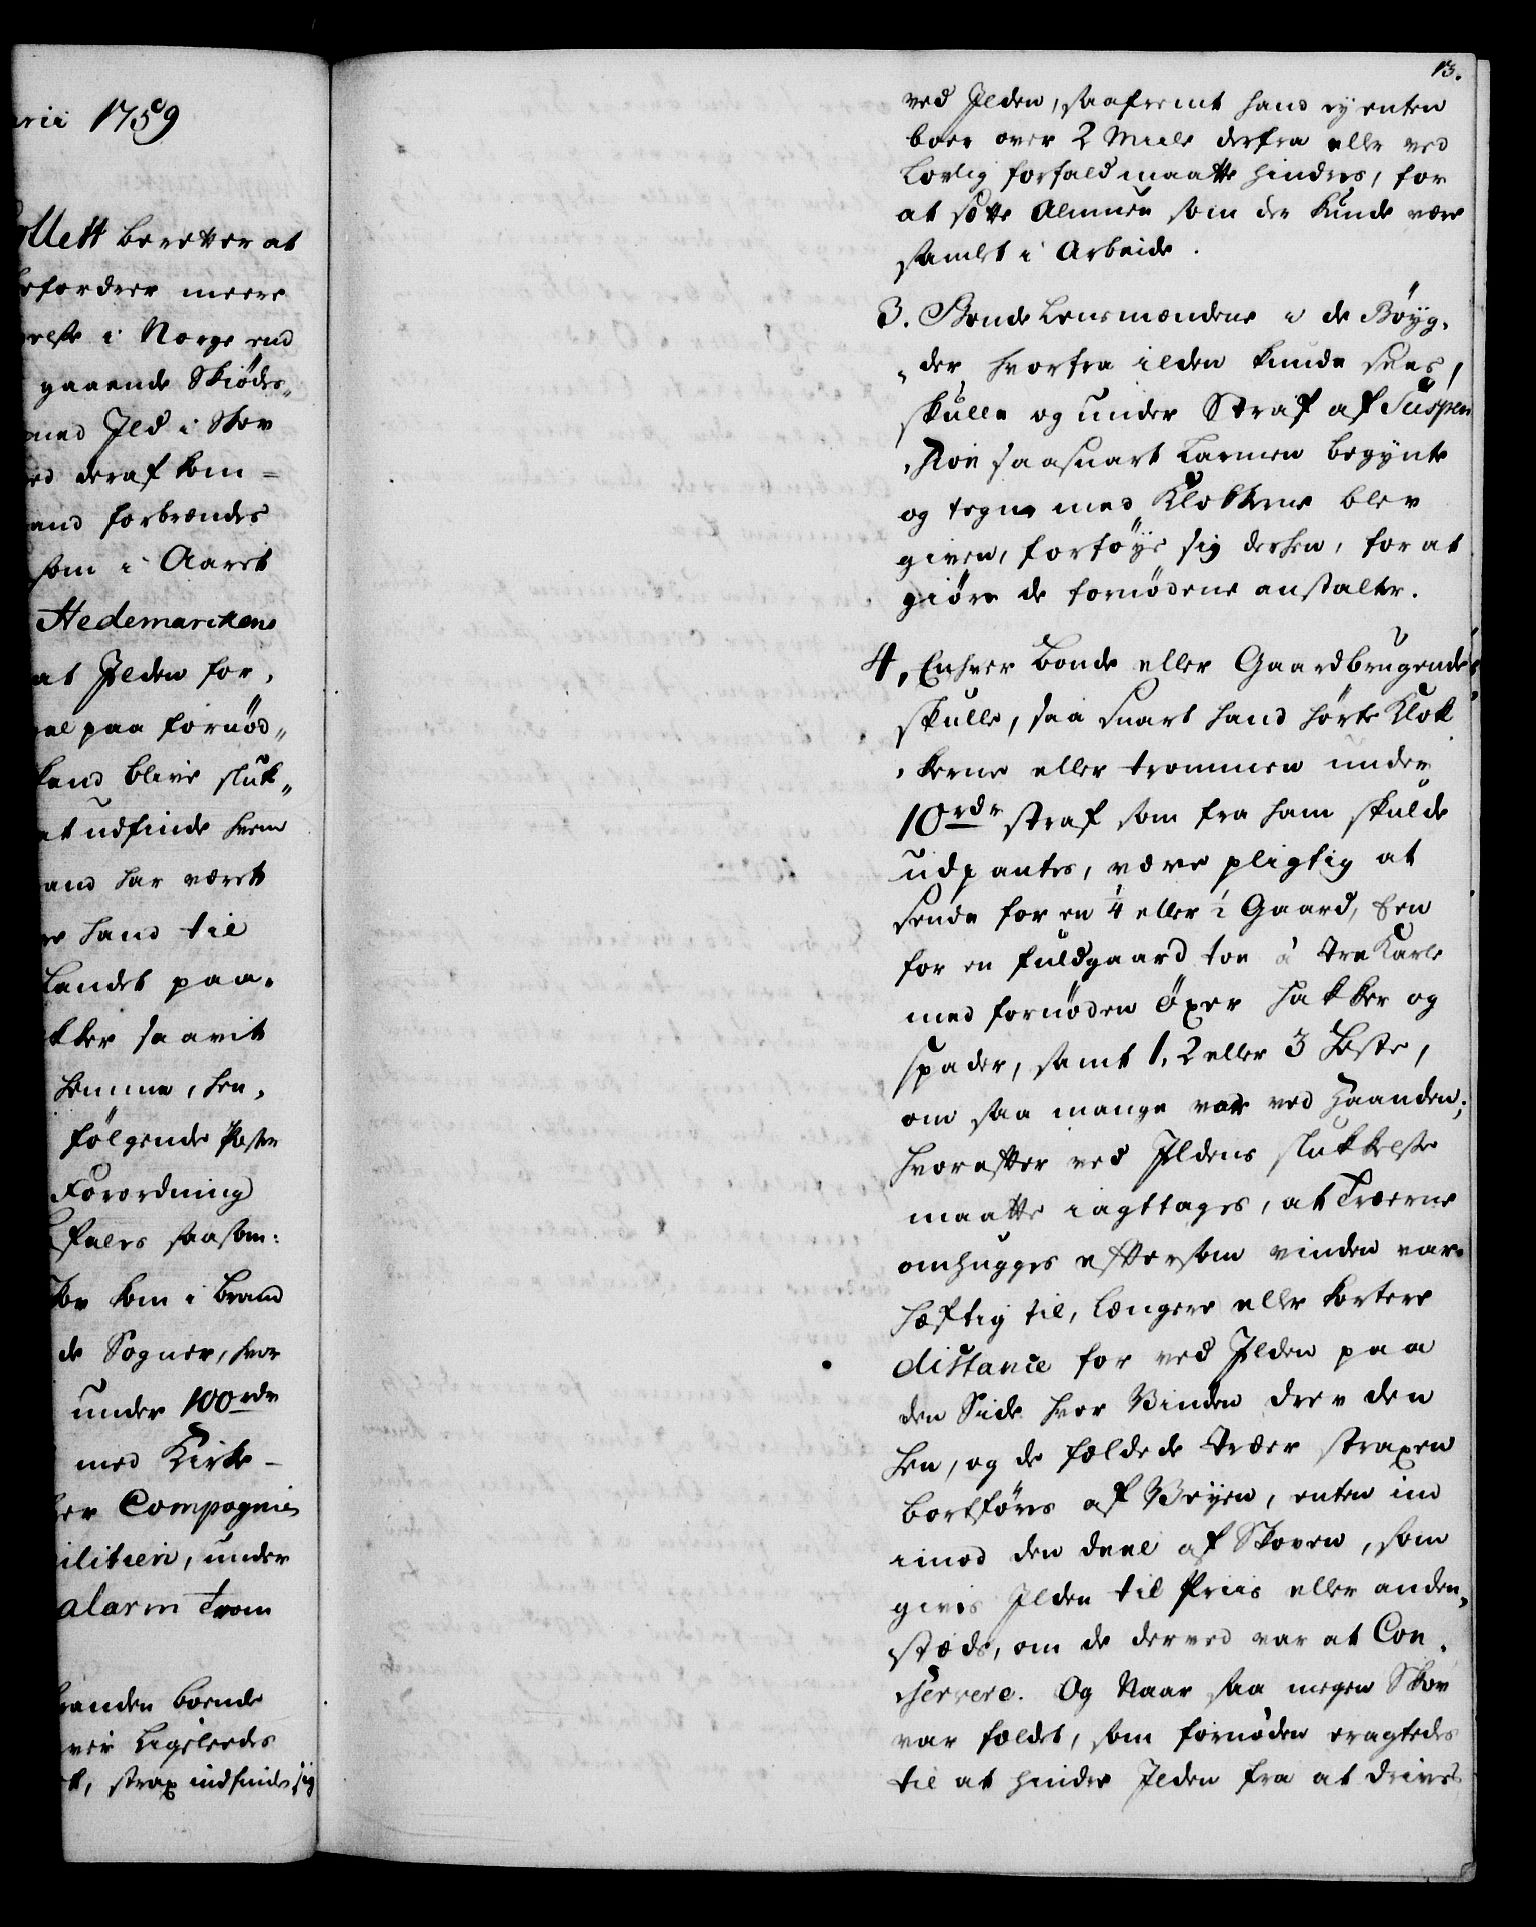 rii 1759
ollett beretter at
befordrer meere
velse i Norge end
gaaende Skiødes„
med Ild i Skov
ved deraf kom=
and forbrændes
som i Aaret
Hedemarckene
at Ilden for,
vel paa fornød„
kand blive sluk„
at udfinde hvem
and har været
er hand til
Landet paa,
kker saavit
hemme, hen,
følgende Poster
Forordning
fales saasom:
Skov kom i Brand
de Sogner, hvor
under 100 rdr
med Kirke=
her Compagnie
ilitien, under
alarm Trom
branden boende
ver ligeledes
et, strax indfinde sig
13.
ved Ilden, saafremt hand ey enten
boer over 2 Miile derfra eller ved
Lovlig forfald maatte hindres, for
at sætte Almuen som der kunde være
samlet i Arbeide.
3. Bonde Lensmændene i de Bøyg,
„der hvorfra ilden kunde sees,
skulle og under Straf af Suspen
„sion saasnart Larmen begynte
og tegn med Klokkerne blev
given, forføye sig derhen, for at
giøre de fornødene anstalter.
4, Enhver Bonde eller Gaardbrugende,
skulle, saa snart hand hørte Klok
„kerne eller trommen under
10 rdr straf som fra ham skulde
udpantes, være pligtig at
sende for en 1/4 eller 1/2 Gaard, Een
for en fuldgaard toe à tre Karle
med fornøden Øxer Hakker og
spader, samt 1, 2 eller 3 Heste,
om saa mange var ved Haanden;
hvorefter ved Ildens slukkelse
maatte iagttages, at Træerne
omhugges eftersom vinden var
hæftig til, længere eller kortere
distance for ved Ilden paa
den Side hvor Vinden drev den
hen, og de fældede træer straxen
bortføres af Veyen, enten ind
imod den deel af Skoven, som
gives Ilden til Priis eller anden„
stæds, om de derved var at Con,
„servere. Og Naar saa megen Skov
var fældet, som fornøden eragtedes
til at hindre Ilden fra at drives